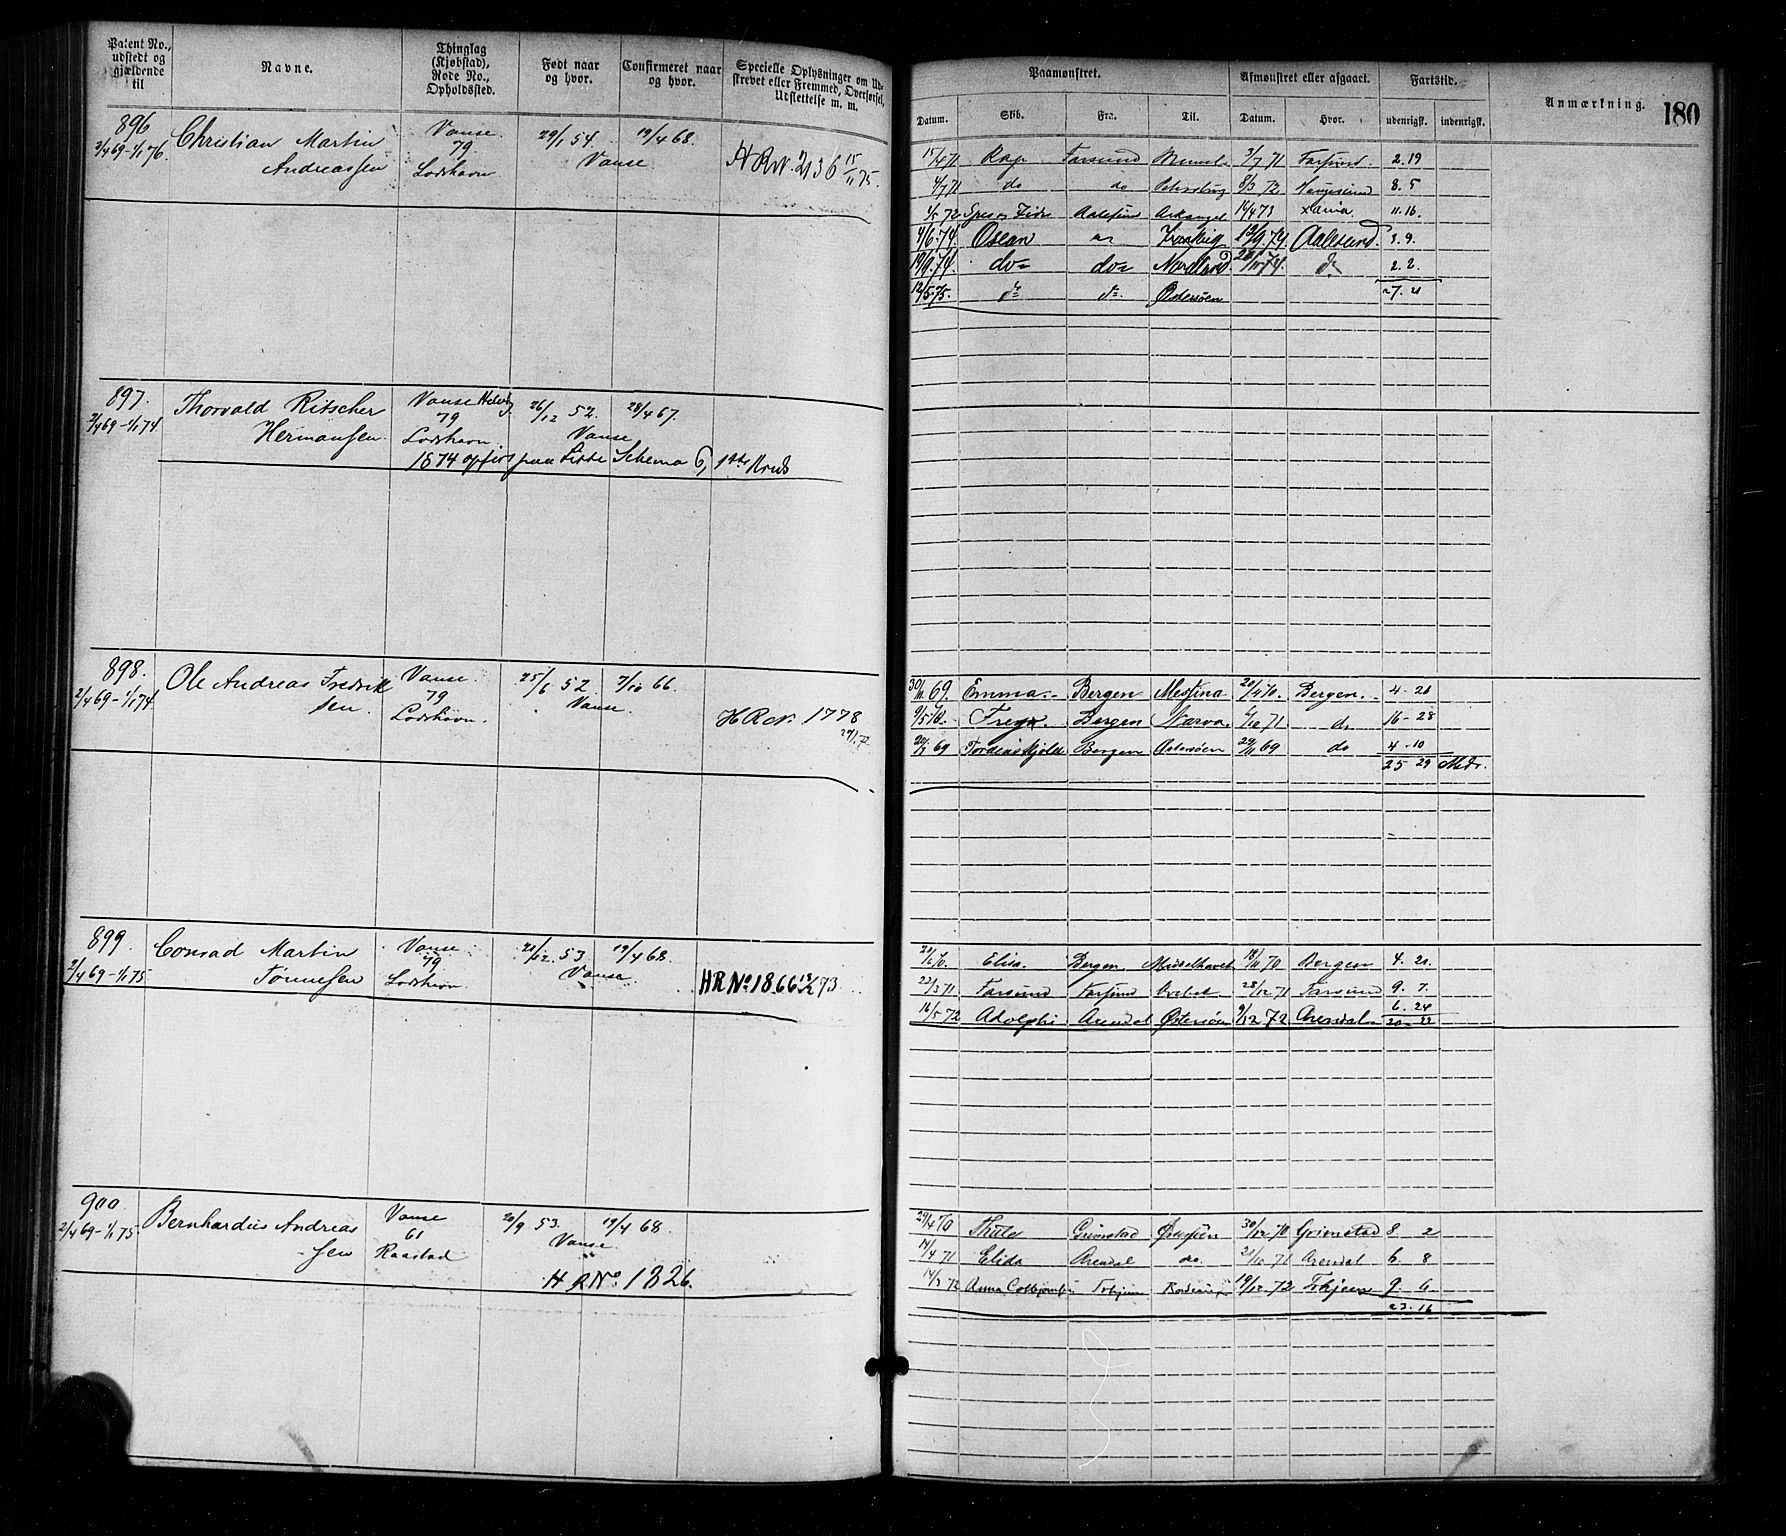 Patent No., udstedt og gjældende til
Navne.
Thinglag (Kjøbstad), Rode No., Opholdssted.
Født naar og hvor.
Confirmeret naar og hvor.
Specielle Oplysninger om Udskrevet eller Fremmed, Overførsel, Udslettelse m. m.
Paamønstret.
Afmønstret eller afgaaet.
Fartstid.
Anmærkning.
180
Datum. Skib. Fra. Til. Datum. Hvor. udenrigsk. indenrigsk.
896
2/4 69 - 1/1 76
Christian Martin
Andreassen
Vanse
79
Lodshavn
29/1 54. 19/4 68.
Vanse
HRN. 2136 15/11 75.
15/4 71 Farsund 3/7 71 Farsund. 2. 19
4/7 71 do do 8/3 72 Haugesund 8. 5
72 Aalesund Arkangel 14/4 73 Xania 11. 16.
4/6 74. Oscan 12/9. 74 Aalesund. 3. 9.
19/9. 74. do do 74. do 2. 2.
12/5 75. do do Østersøen 27. 21
897.
2/4 69 - 1/1 74.
Thorvald Ritscher
Hermansen
Vanse
79
Lodshavn
26/12 52. 28/4 67.
Vanse
1874 opført paa Liste Schema 6, 1ste Kreds
898.
2/4 69 - 1/1 74
Ole Andreas Fredrik
sen.
Vanse.
79
Lodshavn.
25/6 52 7/10 66.
Vanse.
HRN. 1778
30/11 69. Emma Bergen Messina 20/4 70. Bergen. 4 - 20
9/5 70. Freya. Bergen Narva. 71 do 16 - 28
69 Tordenskjold Bergen Østersøen 29/11 69 do 4 - 10
25 29 Mdr.
899.
2/4 69 - 1/1 75
Conrad Martin
Tønnesen
Vanse
79
Lodshavn
21/12. 53 19/4 68.
Vanse
HR No. 1866 73
70. Elisa. Bergen. Middelhavet 18/11 70 Bergen 4. 20.
22/3 71 Farsund Farsund 28/12 71 Farsund 9. 7.
16/5 72 Adolphi Arendal Østersøen 9/12 72 Arendal 6. 24
20 - 22
900
2/4 69 - 1/1 75.
Bernhardus Andreas
sen
Vanse
61
Raastad
20/9 53. 19/4 68.
Vanse.
HR No. 1826.
29/4 70 Grimstad Østersøen 30/12 70 Grimstad 8 2
14/4 71 Elida Arendal do. 71 Arendal 6. 8
14/3 72 Anna 19/12 72 9. 6
23. 16